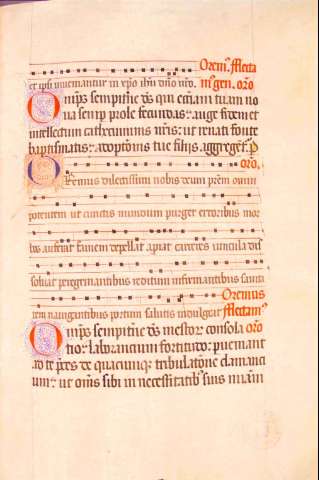 Orem⁹. Flecta
et ipsi inueniantur in xp̄o ih̄u dn̄o nr̄o. m⁹ gen. oro
Omp̄s sempit̄ne d̄s qui eccl̄iam tuam no
ua semp prole fecundas: auge fidem et
intellectum cathecuminis nr̄is: ut renati fonte
baptismatis: adoptionis tue filiis aggreget̄. P
oro.
Oremus dilectissimi nobis deum pr̄em omni
potentem ut cunctis mundum purget erroribus mor
bos auferat famem depellat. apiat carceres uincula dis
soluat peregrinantibus reditum infirmantibus sanita
Oremus
tem nauigantibus portum salutis indulgeat Flectam⁹
Omp̄s sempit̄ne d̄s mestoꝝ consola oro
tio: laborancium fortitudo: pueniant
ad te p̄ces de quacumqꝫ tribulatōne clamanci
um: ut om̄s sibi in necessitatibꝫ suis miām